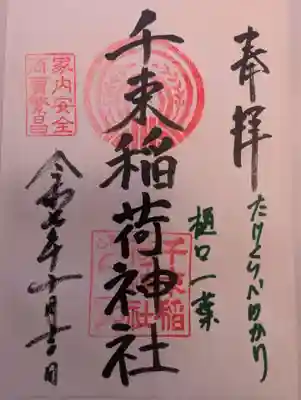 奉拝
たけくらべゆかり
樋口一葉
千束稲荷神社
家内安全
商売繁昌
千束稲
荷神社
令和七年十月十一日